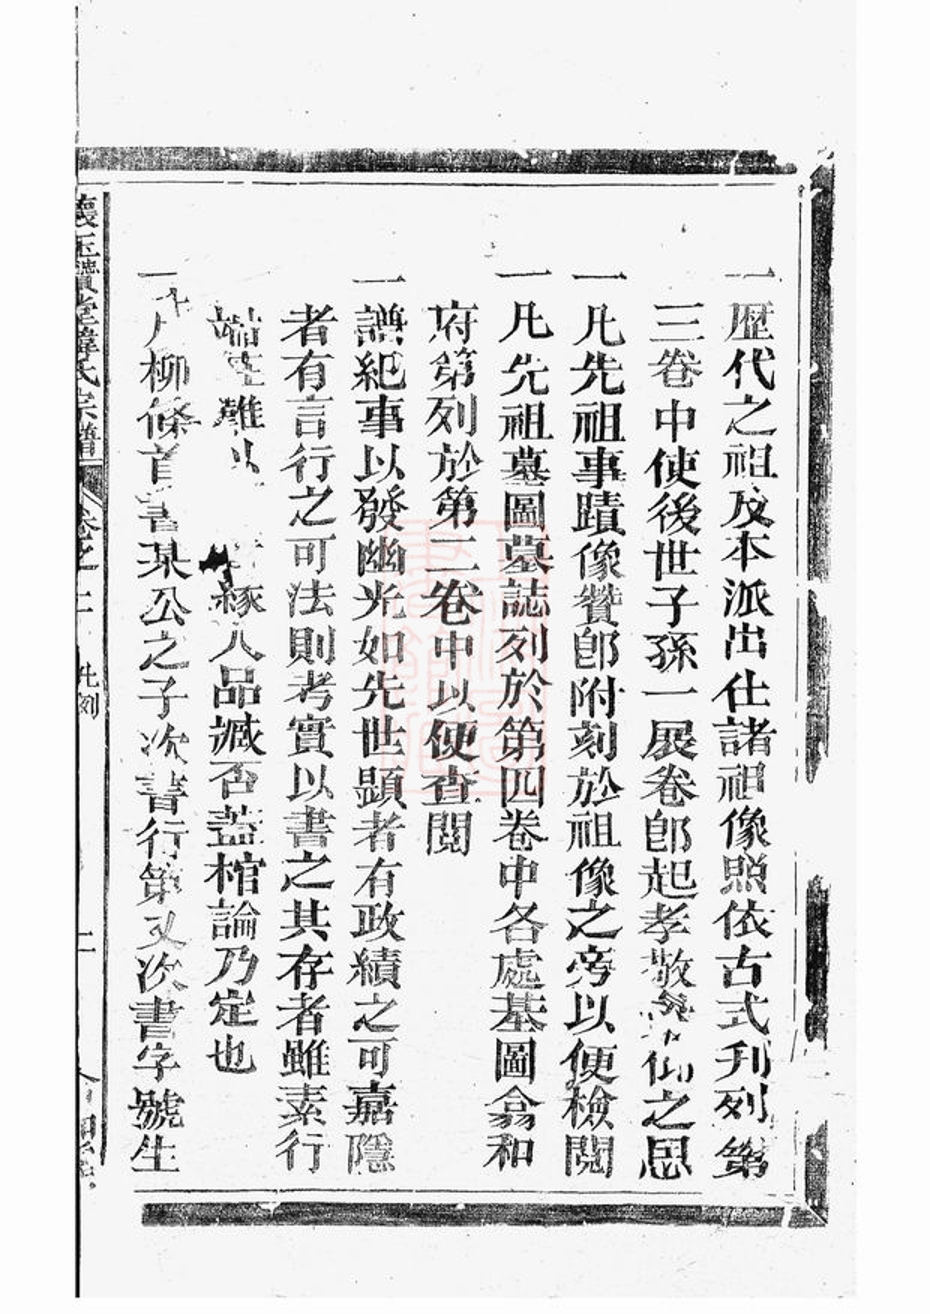 一歷代之祖及本派出仕諸祖像照依古式刋列第
三卷中使後世子孫一展卷卽起孝敬仰之思
一凡先祖事蹟像贊卽附刻於祖像之旁以便檢閱
一凡先祖墓圖墓誌列於第四卷中各處基圖翕和
府第列於第二卷中以便查閱
一譜紀事以發幽光如先世顕者有政績之可嘉隱
者有言行之可法則考實以書之其存者雖素行
端難以緣人品臧否蓋棺論乃定也
一柳條首書某公之子次書行第又次書字號生
懷玉讚堂韓氏宗譜 卷之一 凡例 二